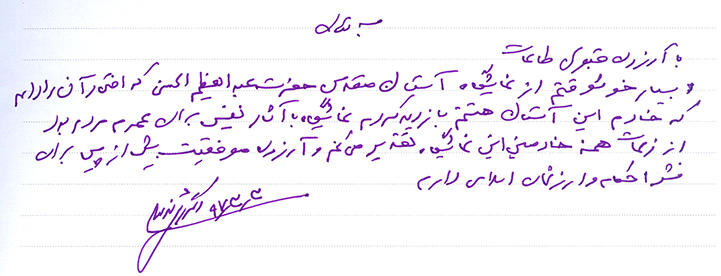 به نام خدا
با آرزوی قبولی طاعات
و بسیار خوشوقتم از نمایشگاه آستان مقدس حضرت عبدالعظیم الحسنی که افتخار آن را دارم
که خادم این آستان هستم بازدید کردم نمایشگاه با آثار نفیس برای عموم مردم بود
از زحمات همه خادمین این نمایشگاه تقدیر می‌کنم و آرزوی موفقیت بیش از پیش برای
نشر احکام و ارزشهای اسلامی دارم
۹۷،۳،۳